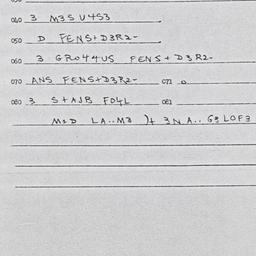 040 3 M3S U4S3
050 D FENS+D3R2-
060 3 GRO44US FENS+D3R2-
070 ANS FENS+D3R2- 071 0
080 3 S+AJB FD4L 081
M2D LA..M3 )+ 3NA.. G3 LOF3